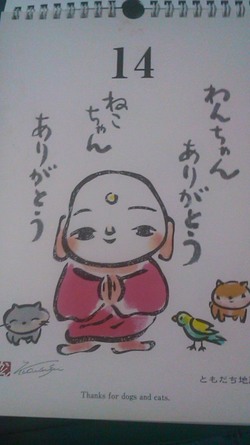 14
わんちゃん
ありがとう
ねこ
ちゃん
ありがとう
ともだち地
Thanks for dogs and cats.